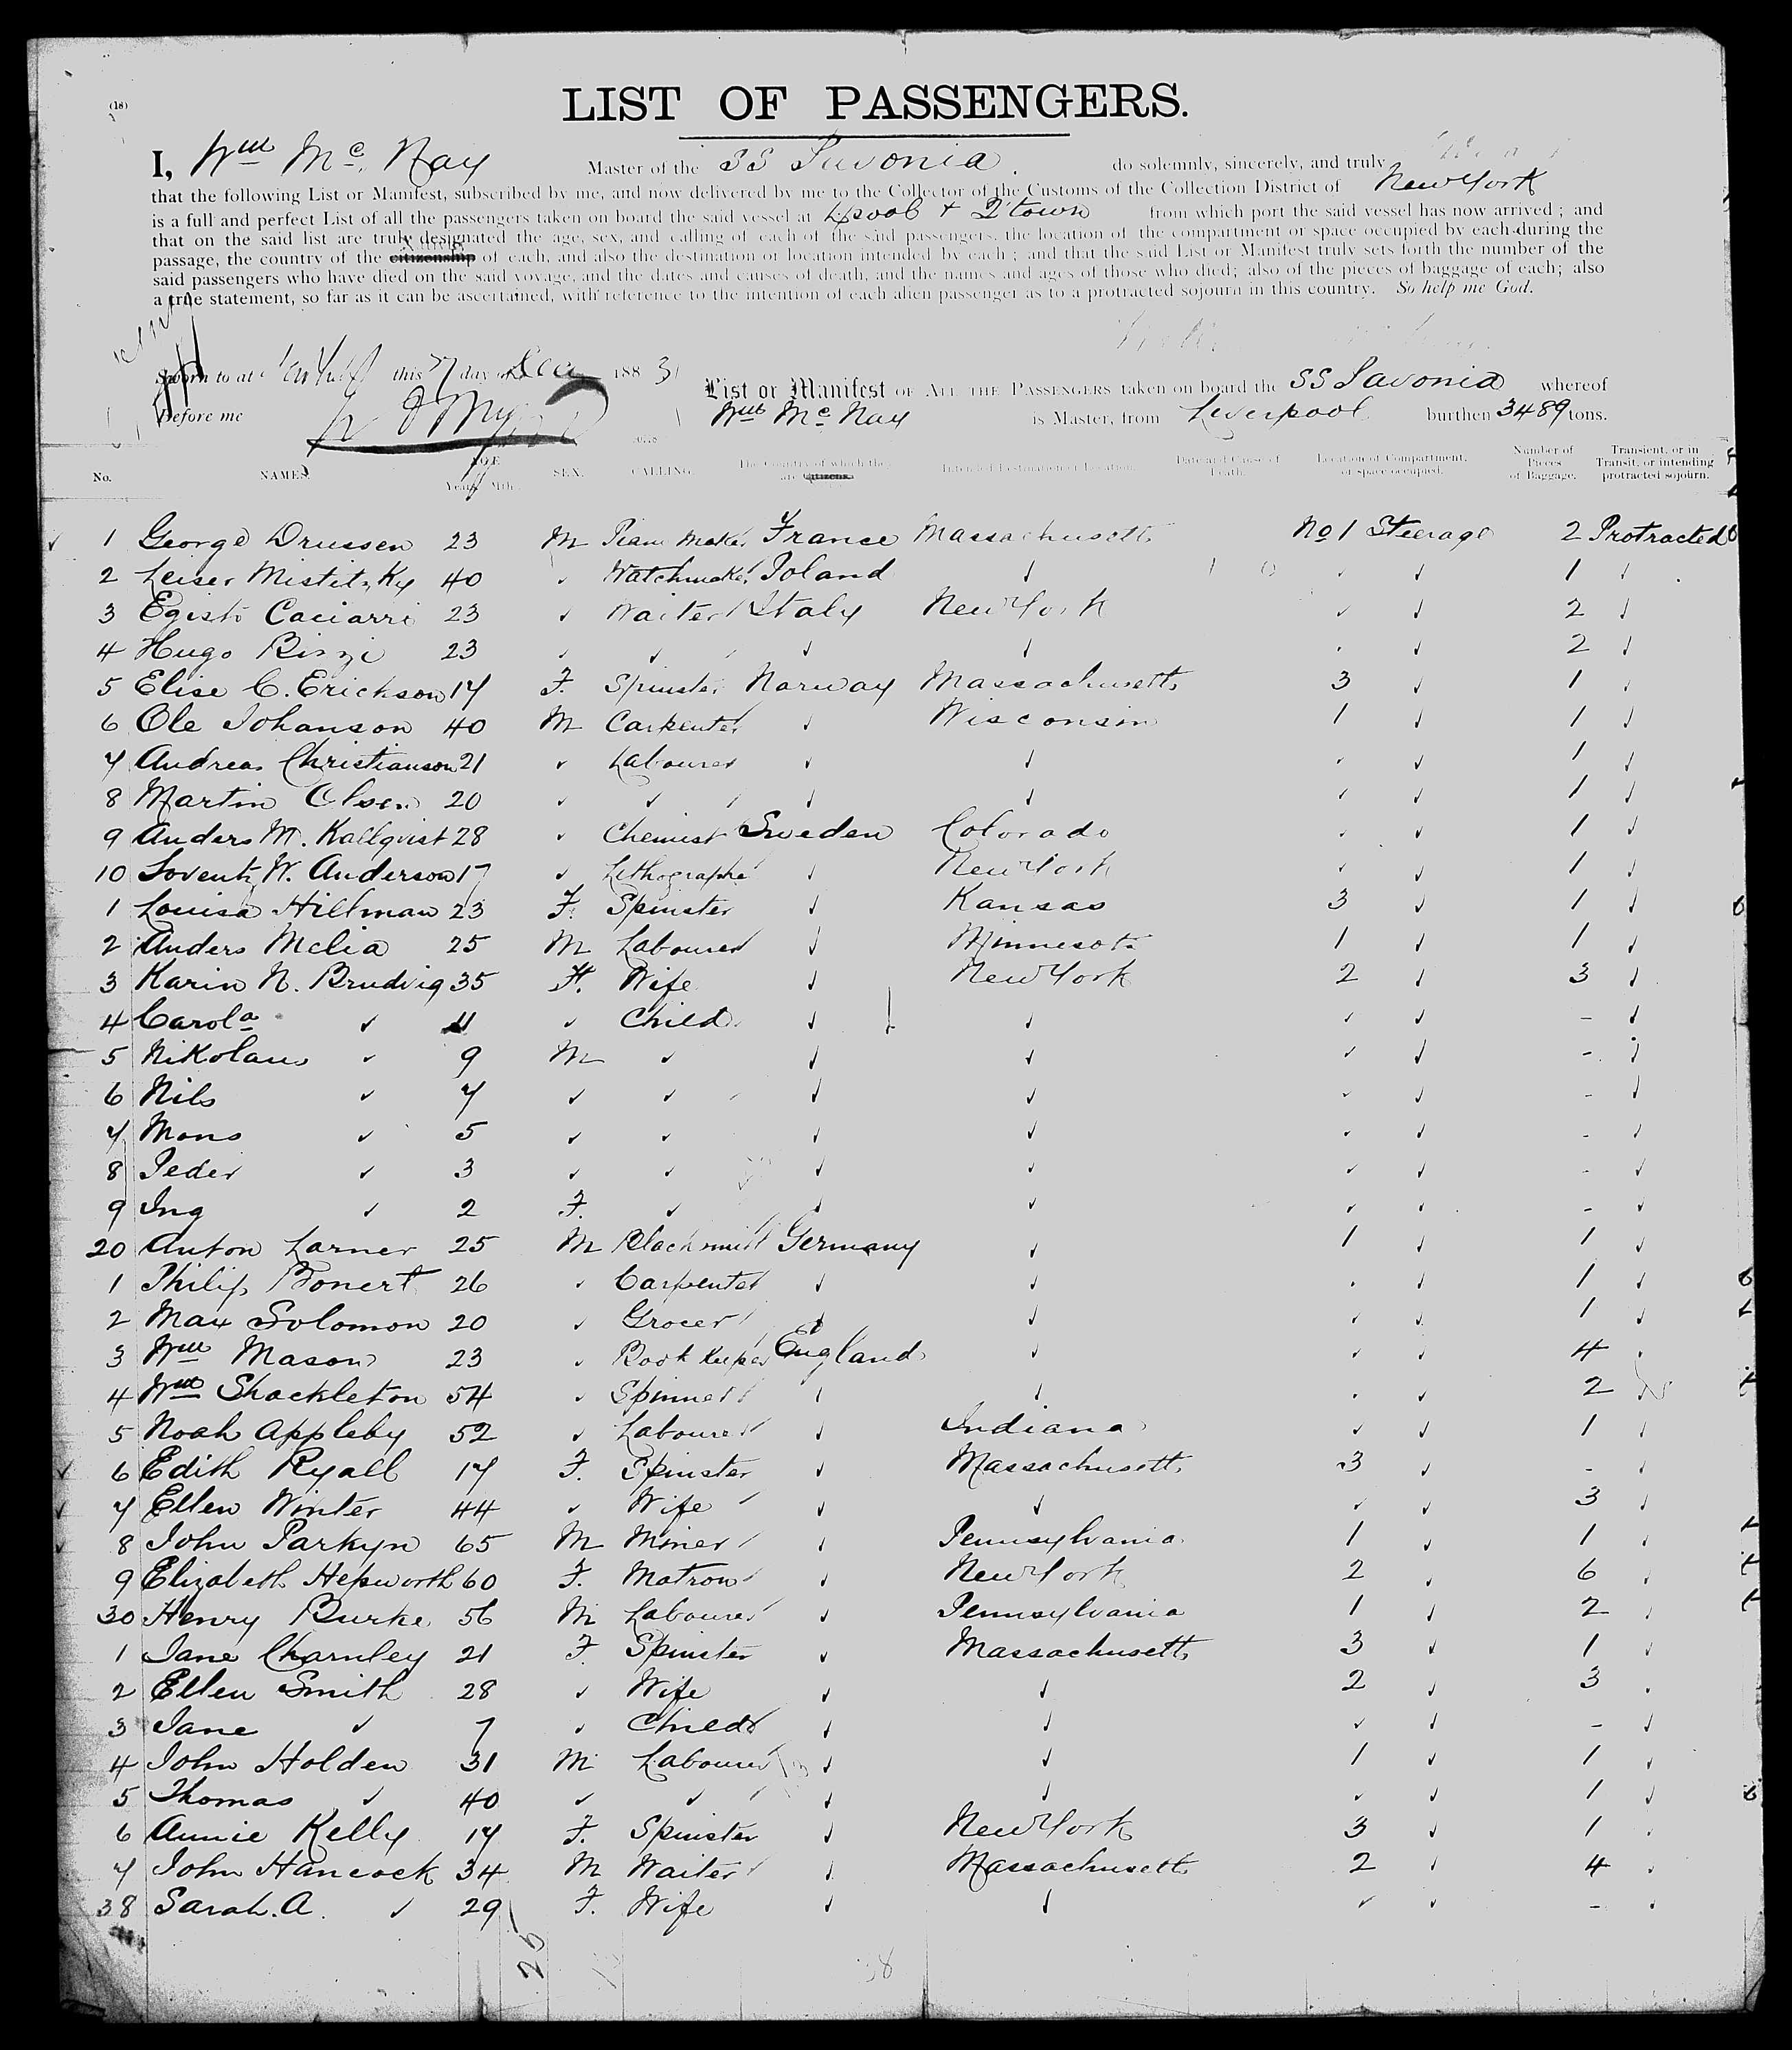 (18)
LIST OF PASSENGERS.
I, Wm Mc. Nay Master of the SS Pavonia. do solemnly, sincerely, and truly
that the following List or Manifest, subscribed by me, and now delivered by me to the Collector of the Customs of the Collection District of New York
is a full and perfect List of all the passengers taken on board the said vessel at L'pool & Q'town from which port the said vessel has now arrived; and
that on the said list are truly designated the age, sex, and calling of each of the said passengers, the location of the compartment or space occupied by each during the
passage, the country of the citizenship of each, and also the destination or location intended by each; and that the said List or Manifest truly sets forth the number of the
said passengers who have died on the said voyage, and the dates and causes of death, and the names and ages of those who died; also of the pieces of baggage of each; also
a true statement, so far as it can be ascertained, with reference to the intention of each alien passenger as to a protracted sojourn in this country. So help me God.
Sworn to at this 7 day of Dec 1883
List or Manifest OF ALL THE PASSENGERS taken on board the SS Pavonia whereof
Before me
Wm Mc Nay is Master, from Liverpool burthen 3489 tons.
No. NAMES. AGE Years. Mth. SEX. CALLING. The Country of which they are citizens. Intended Destination or Location. Date and Cause of Death. Location of Compartment, or space occupied. Number of Pieces of Baggage. Transient, or in Transit, or intending protracted sojourn.
1 George Drussen 23 M Piano Maker France Massachusetts No 1 Steerage 2 Protracted
2 Leiser Mistitzky 40 " Watchmaker Poland " " " 1 "
3 Egisto Caciarri 23 " Waiter Italy New York " " 2 "
4 Hugo Rizzi 23 " " " " " " 2 "
5 Elise C. Erickson 17 F. Spinster Norway Massachusetts 3 " 1 "
6 Ole Johanson 40 M Carpenter " Wisconsin 1 " 1 "
7 Andreas Christianson 21 " Labourer " " " " 1 "
8 Martin Olsen 20 " " " " " " 1 "
9 Anders M. Kallqvist 28 " Chemist Sweden Colorado " " 1 "
10 W. Anderson 17 " Lithographer " New York " " 1 "
1 Louisa Hillman 23 F. Spinster " Kansas 3 " 1 "
2 Anders Melia 25 M Labourer " Minnesota 1 " 1 "
3 Karin N. Brudvig 35 F. Wife " New York 2 " 3 "
4 Carola " 11 " Child " " " " - "
5 Nikolaus " 9 M " " " " " - "
6 Nils " 7 " " " " " " - "
7 Mons " 5 " " " " " " - "
8 Peder " 3 " " " " " " - "
9 Ing " 2 F. " " " " " - "
20 Anton Larner 25 M Blacksmith Germany " 1 " 1 "
1 Philip Bonert 26 " Carpenter " " " " 1 "
2 Max Solomon 20 " Grocer " " " " 1 "
3 Wm Mason 23 " Book keeper England " " " 4 "
4 Wm Shackleton 54 " Spinner " " " " 2 "
5 Noah Appleby 52 " Labourer " Indiana " " 1 "
6 Edith Ryall 17 F. Spinster " Massachusetts 3 " - "
7 Ellen Winter 44 " Wife " " " " 3 "
8 John Parkyn 65 M Miner " Pennsylvania 1 " 1 "
9 Elizabeth Hepworth 60 F. Matron " New York 2 " 6 "
30 Henry Burke 56 M Labourer " Pennsylvania 1 " 2 "
1 Jane Charnley 21 F. Spinster " Massachusetts 3 " 1 "
2 Ellen Smith 28 " Wife " " 2 " 3 "
3 Jane " 7 " Child " " " " - "
4 John Holden 31 M Labourer " " 1 " 1 "
5 Thomas " 40 " " " " " " 1 "
6 Annie Kelly 17 F. Spinster " New York 3 " 1 "
7 John Hancock 34 M Waiter " Massachusetts 2 " 4 "
38 Sarah. A. " 29 F. Wife " " " " - "
25
38